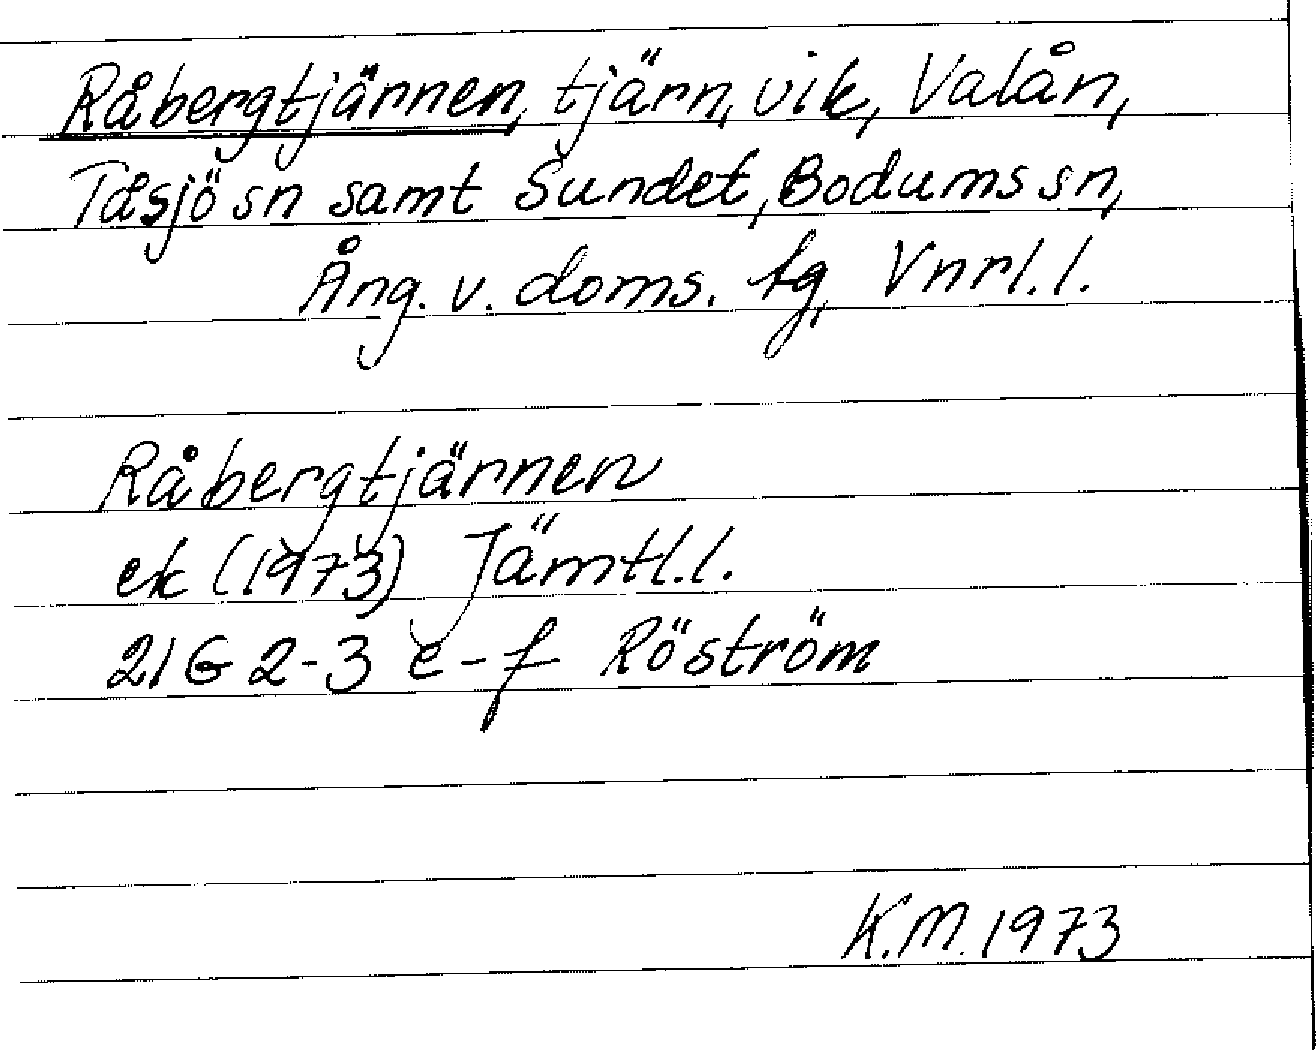 Råbergtjärnen, tjärn, vik, Valån,
Tåsjö sn samt Sundet, Bodums sn,
Ång. v. doms. tg, Vnrl. l.
Råbergtjärnen
ek (1973) Jämtl. l.
21 G 2-3 e-f Röström
K.M. 1973